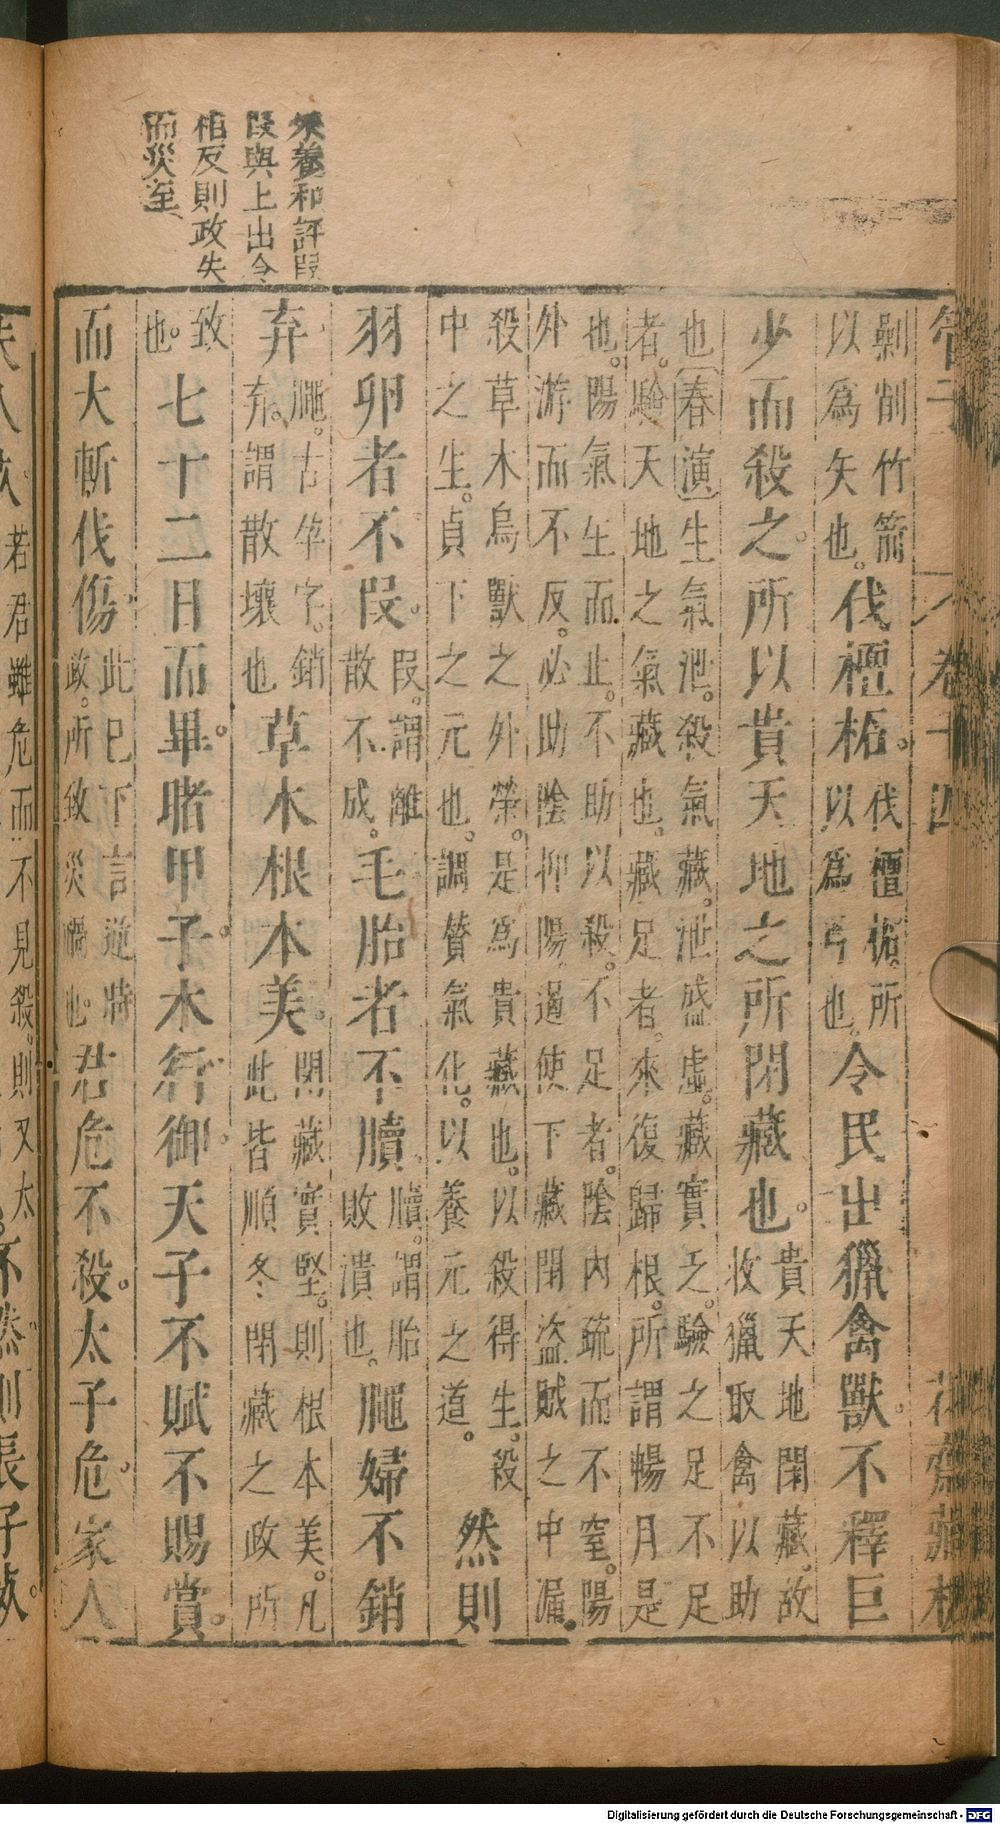 朱養和評段
段與上出令
相反則政失
而災至
管子 卷十四 花齋藏板
剿削竹箭
以爲矢也。
伐檀柘。
伐檀柘。所
以爲弓也。
令民出獵禽獸。不釋巨
少而殺之。所以貴天地之所閉藏也。
貴天地閉藏。故
收獵取禽以助
也〔春演〕生氣泄。殺氣藏。泄盛虛。藏實乏。驗之足不足
者。驗天地之氣藏也。藏足者。來復歸根。所謂暢月是
也。陽氣生而止。不助以殺。不足者。陰内疏而不窒。陽
外游而不反。必助陰抑陽。適使下藏閉盜賊之中漏。
殺草木鳥獸之外榮。是爲貴藏也。以殺得生。殺
中之生。貞下之元也。調贊氣化。以養元之道。
然則
羽卵者不段。
段。謂離
散不成。
毛胎者不牘
牘。謂胎
敗潰也。
䐲婦不銷
弃
䐲。古孕字。銷
弃。謂散壞也
草木根本美。
閉藏實堅。則根本美。凡
此皆順冬閉藏之政所
致
也。
七十二日而畢。睹甲子。木行御。天子不賦不賜賞。
而大斬伐傷
此巳下言逆時
政。所致災禍也。
君危不殺。太子危。家人
若君雖危而不見殺。則又太
不然則長子死。
Digitalisierung gefördert durch die Deutsche Forschungsgemeinschaft - DFG